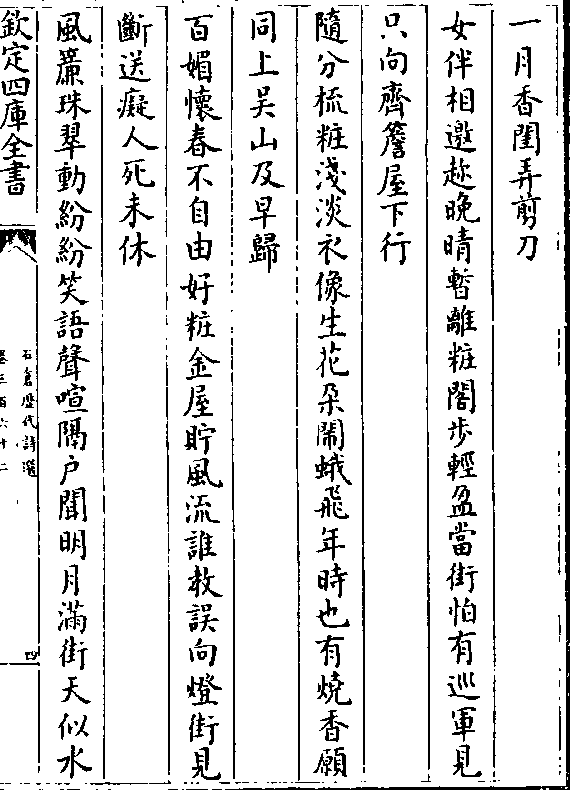 一月香閨弄剪刀
女伴相邀趂晩晴暫離粧閣步輕盈當街怕有巡軍見
只向齊簷屋下行
隨分梳粧淺淡衣像生花朶鬧蛾飛年時也有燒香願
同上吳山及早歸
百媚懷春不自由好粧金屋貯風流誰教誤向燈街見
斷送癡人死未休
風簾珠翠動紛紛笑語聲喧隔户聞明月滿街天似水
欽定四庫全書
石倉歷代詩選
卷三百六十二
四